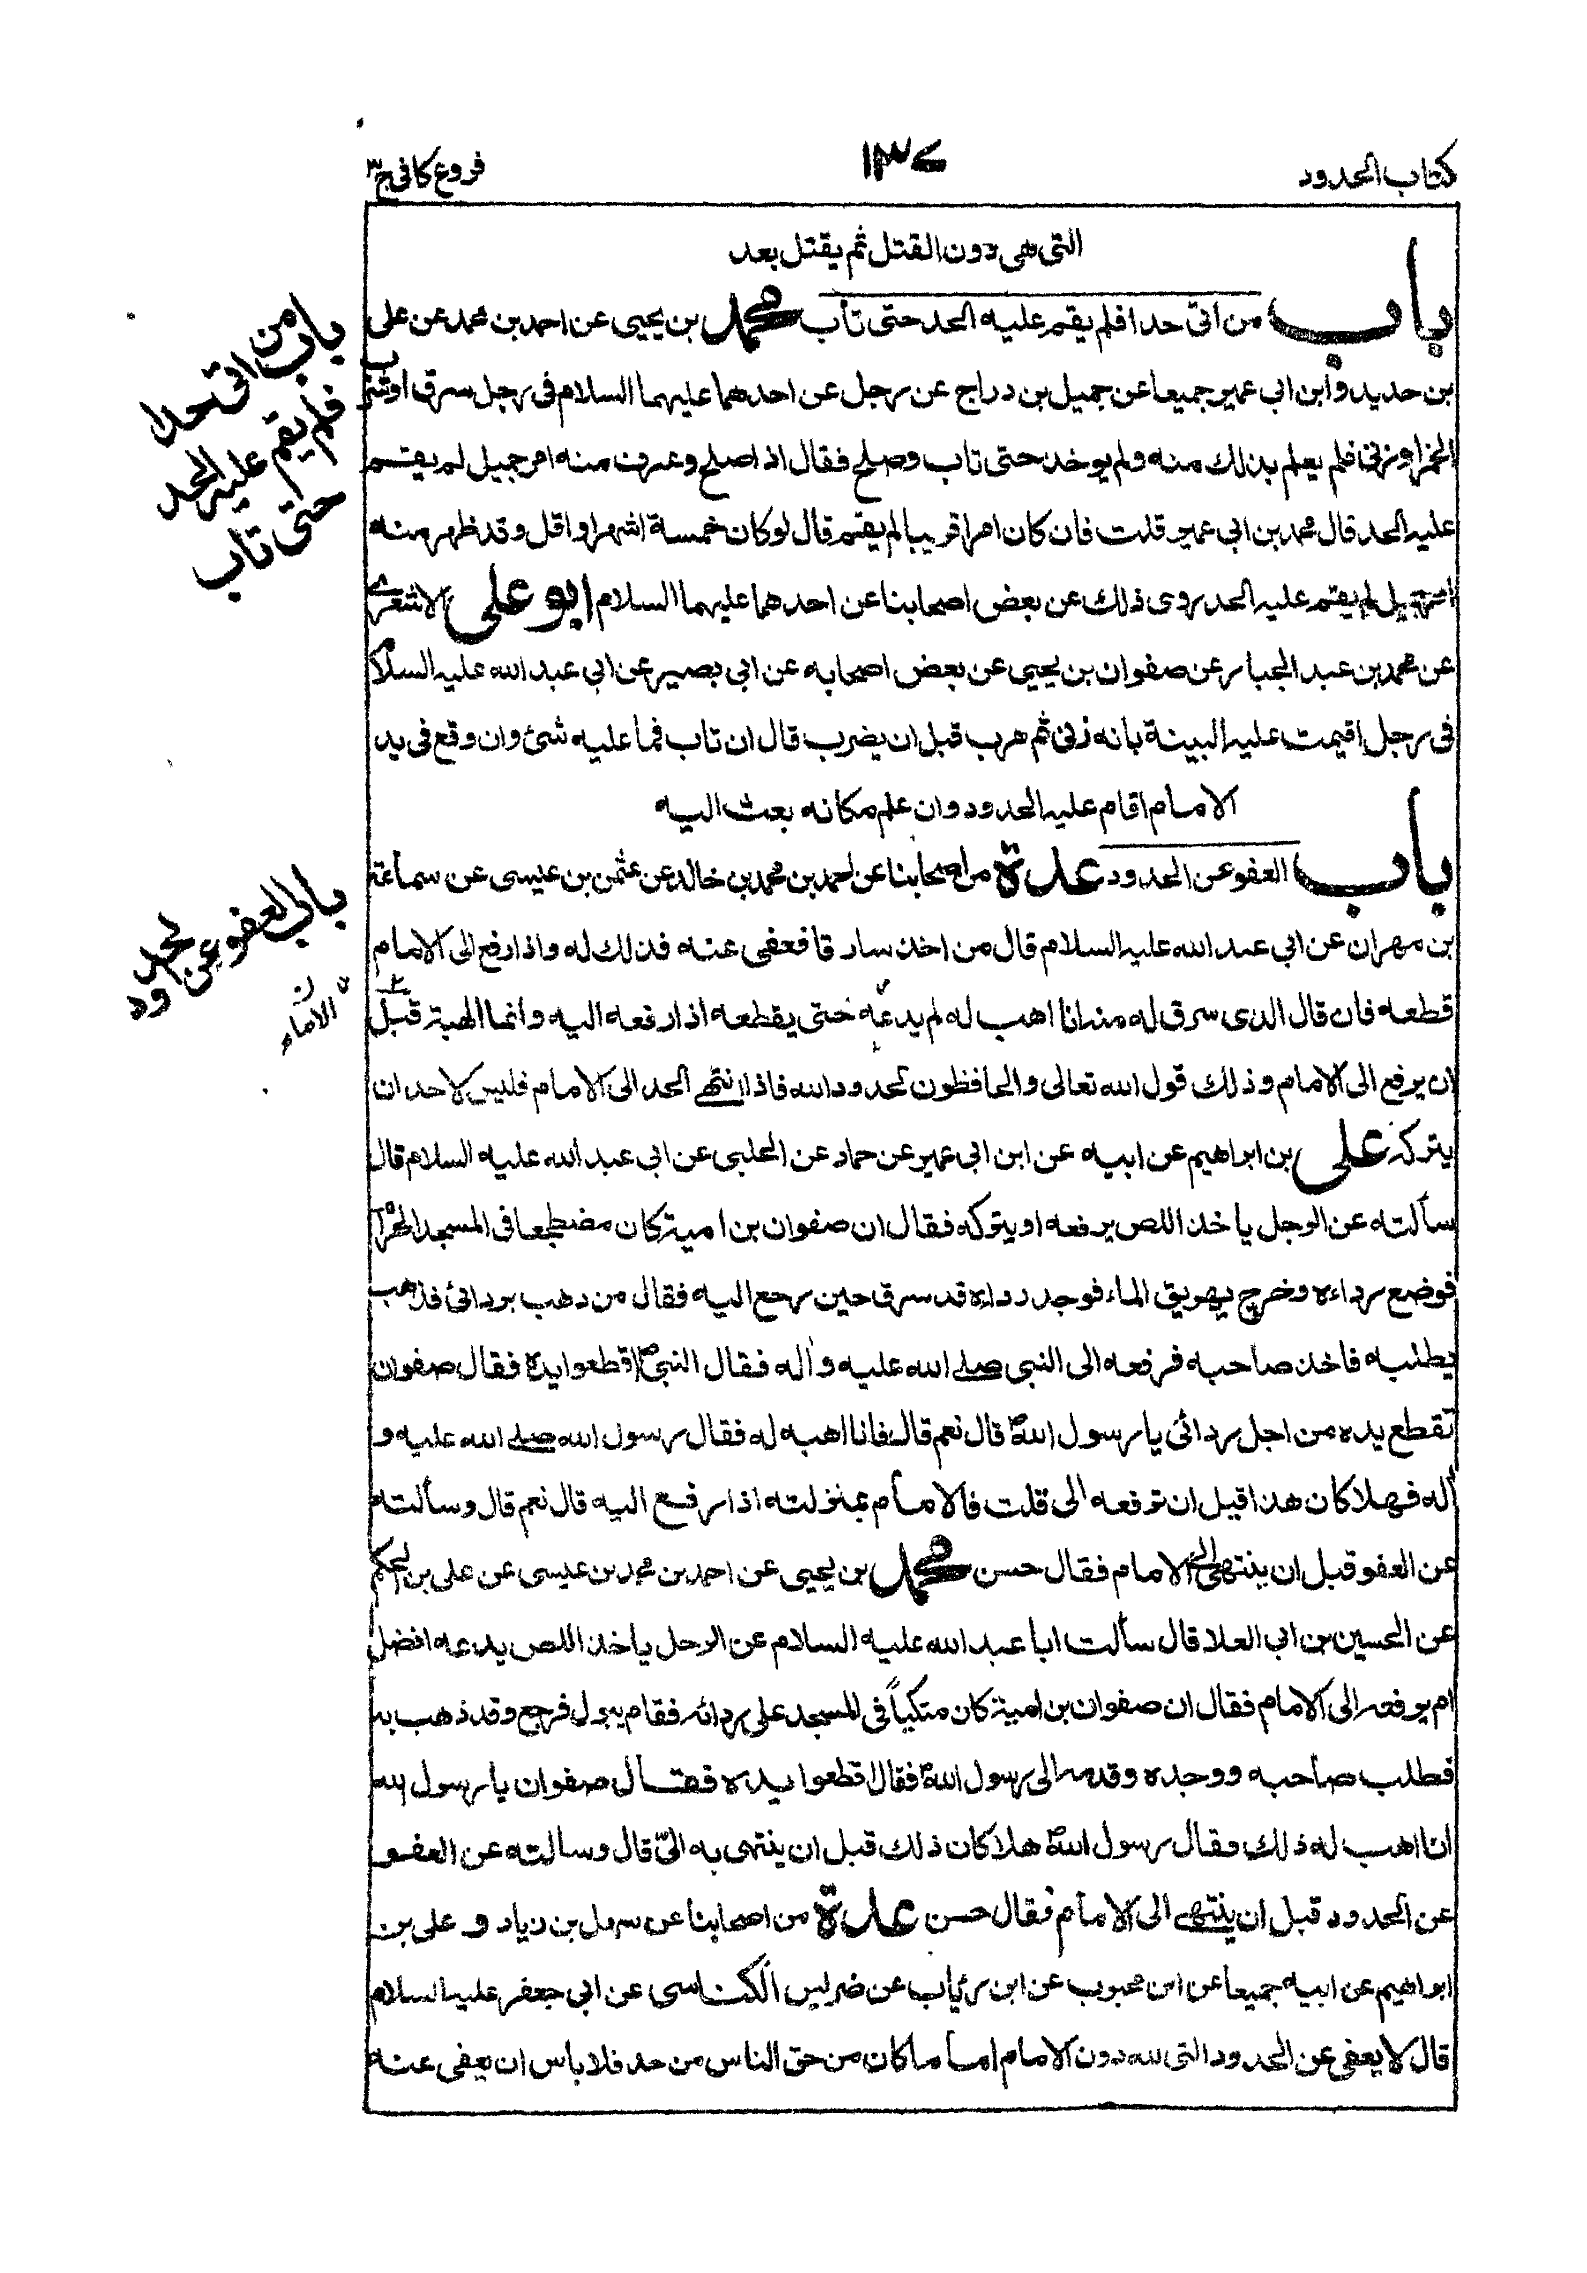 كتاب الحدود
١٣٧
فروع كافي ج٣
التى هى دون القتل ثم يقتل بعد
باب من اتى حدا فلم يقم عليه الحد حتى تاب محمد بن يحيى عن احمد بن محمد عن على
بن حديد وابن ابى عمير جميعا عن جميل بن دراج عن رجل عن احدهما عليهما السلام فى رجل سرق اوشرب
الخمر اوزنى فلم يعلم بذلك منه ولم يوخذ حتى تاب وصلح فقال اذا صلح وعرف منه امر جميل لم يقم
عليه الحد قال محمد بن ابى عمير قلت فان كان امرا قريبا لم يقم قال لوكان خمسة اشهر او اقل وقد ظهر منه
امر جميل لم يقم عليه الحد روى ذلك عن بعض اصحابنا عن احدهما عليهما السلام ابو على الاشعرى
عن محمد بن عبد الجبار عن صفوان بن يحيى عن بعض اصحابه عن ابى بصير عن ابى عبد الله عليه السلام
فى رجل اقيمت عليه البينة بانه زنى ثم هرب قبل ان يضرب قال ان تاب فما عليه شئ وان وقع فى يد
الامام اقام عليه الحدود وان علم مكانه بعث اليه
باب العفو عن الحدود عدة من اصحابنا عن احمد بن محمد بن خالد عن عثمن بن عيسى عن سماعة
بن مهران عن ابى عبد الله عليه السلام قال من اخذ سارقا فعفى عنه فذلك له واذا رفع الى الامام
قطعه فان قال الذى سرق له منه انا اهب له لم يدعه حتى يقطعه اذا رفعه اليه وانما الهبة قبل
ان يرفع الى الامام وذلك قول الله تعالى والحافظون لحدود الله فاذا انتهى الحد الى الامام فليس لاحد ان
يتركه على بن ابراهيم عن ابيه عن ابن ابى عمير عن حماد عن الحلبى عن ابى عبد الله عليه السلام قال
سألته عن الرجل ياخذ اللص يرفعه او يتركه فقال ان صفوان بن امية كان مضطجعا فى المسجد الحرام
فوضع رداءه وخرج يهريق الماء فوجد رداءه قد سرق حين رجع اليه فقال من ذهب بردائى فذهب
يطلبه فاخذ صاحبه فرفعه الى النبى صلى الله عليه واله فقال النبى ص اقطعوا يده فقال صفوان
تقطع يده من اجل ردائى يا رسول الله ص قال نعم قال فانا اهبه له فقال رسول الله صلى الله عليه و
اله فهلا كان هذا قبل ان ترفعه الى قلت فالامام بمنزلته اذا رفع اليه قال نعم قال وسألته
عن العفو قبل ان ينتهى الى الامام فقال حسن محمد بن يحيى عن احمد بن محمد بن عيسى عن على بن الحكم
عن الحسين بن ابى العلا قال سألت ابا عبد الله عليه السلام عن الرجل ياخذ اللص يدعه افضل
ام يرفعه الى الامام فقال ان صفوان بن امية كان متكيا فى المسجد على ردائه فقام يبول فرجع وقد ذهب به
فطلب صاحبه ووجده وقدمه الى رسول الله ص فقال اقطعوا يده فقال صفوان يا رسول الله
انا اهب له ذلك وقال رسول الله ص هلا كان ذلك قبل ان ينتهى به الىّ قال وسالته عن العفو
عن الحدود قبل ان ينتهى الى الامام فقال حسن عدة من اصحابنا عن سهل بن زياد و على بن
ابراهيم عن ابيه جميعا عن ابن محبوب عن ابن رئياب عن ضريس الكناسى عن ابى جعفر عليه السلام
قال لا يعفى عن الحدود التى لله دون الامام اما ما كان من حق الناس من حد فلا باس ان يعفى عنه
باب من اتى حدا
فلم يقم عليه الحد
حتى تاب
باب العفو عن الحدود
ن
الامام